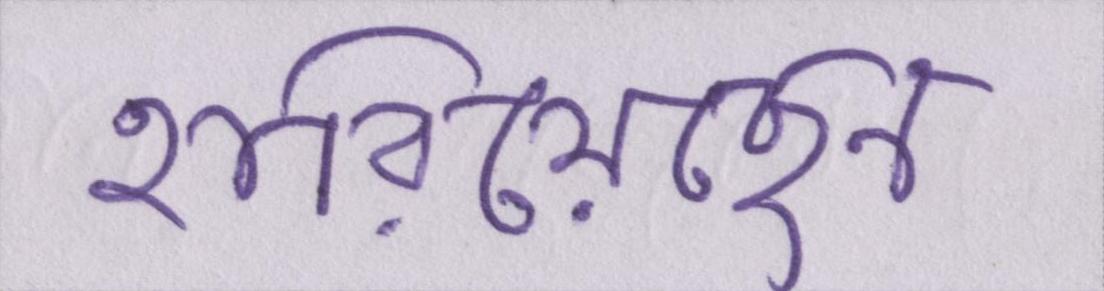 হারিয়েছেন